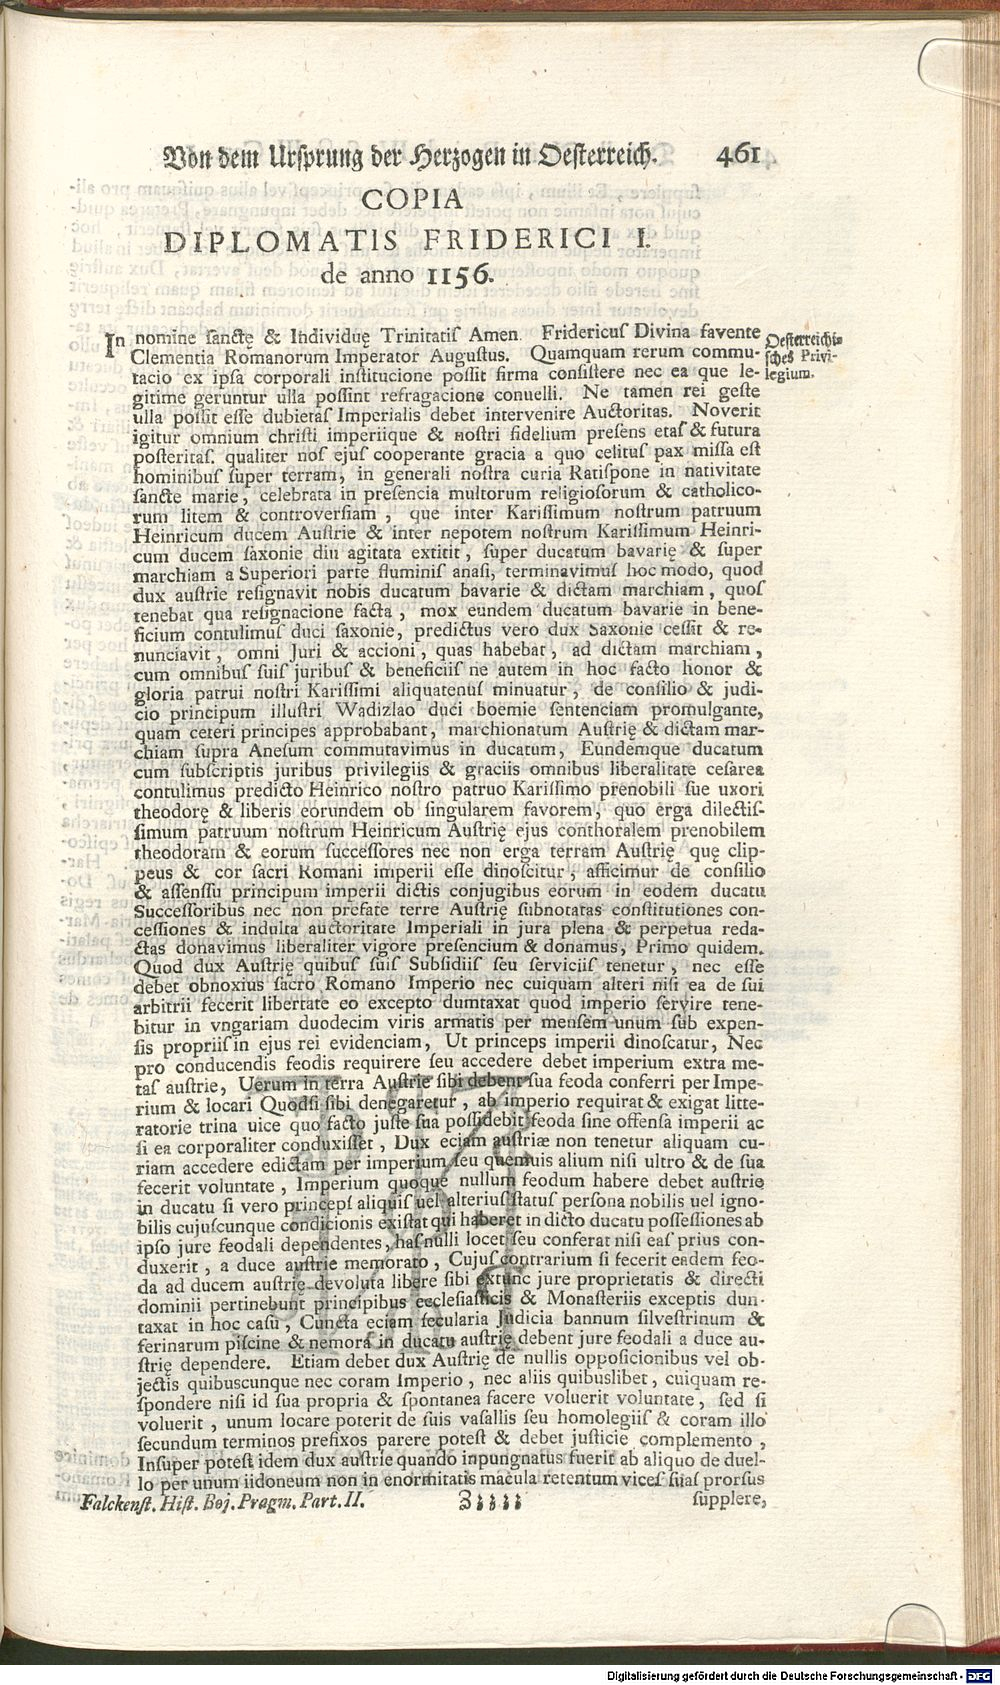 Von dem Ursprung der Herzogen in Oesterreich. 461
COPIA
DIPLOMATIS FRIDERICI I.
de anno 1156.
In nomine ſanctę & Individuę Trinitatiſ Amen. Fridericuſ Divina favente
Clementia Romanorum Imperator Auguſtus. Quamquam rerum commu-
tacio ex ipſa corporali inſtitucione poſſit firma conſiſtere nec ea que le-
gitime geruntur ulla poſſint refragacione conuelli. Ne tamen rei geſte
ulla poſſit eſſe dubietaſ Imperialis debet intervenire Auctoritas. Noverit
igitur omnium chriſti imperiique & noſtri fidelium preſens etaſ & futura
poſteritaſ. qualiter noſ ejuſ cooperante gracia a quo celituſ pax miſſa eſt
hominibuſ ſuper terram, in generali noſtra curia Ratiſpone in nativitate
ſancte marie, celebrata in preſencia multorum religioſorum & catholico-
rum litem & controverſiam, que inter Kariſſimum noſtrum patruum
Heinricum ducem Auſtrie & inter nepotem noſtrum Kariſſimum Heinri-
cum ducem ſaxonie diu agitata extitit, ſuper ducatum bavarię & ſuper
marchiam a Superiori parte fluminiſ anaſi, terminavimuſ hoc modo, quod
dux auſtrie reſignavit nobis ducatum bavarie & dictam marchiam, quoſ
tenebat qua reſignacione facta, mox eundem ducatum bavarie in bene-
ficium contulimuſ duci ſaxonie, predictus vero dux Saxonie ceſſit & re-
nunciavit, omni Juri & accioni, quas habebat, ad dictam marchiam,
cum omnibuſ ſuiſ juribuſ & beneficiiſ ne autem in hoc facto honor &
gloria patrui noſtri Kariſſimi aliquatenuſ minuatur, de conſilio & judi-
cio principum illuſtri Wadizlao duci boemie ſentenciam promulgante,
quam ceteri principes approbabant, marchionatum Auſtrię & dictam mar-
chiam ſupra Aneſum commutavimus in ducatum, Eundemque ducatum
cum ſubſcriptis juribus privilegiis & graciis omnibus liberalitate ceſarea
contulimus predicto Heinrico noſtro patruo Kariſſimo prenobili ſue uxori
theodorę & liberis eorundem ob ſingularem favorem, quo erga dilectiſ-
ſimum patruum noſtrum Heinricum Auſtrię ejus conthoralem prenobilem
theodoram & eorum ſucceſſores nec non erga terram Auſtrię quę clip-
peus & cor ſacri Romani imperii eſſe dinoſcitur, afficimur de conſilio
& aſſenſſu principum imperii dictis conjugibus eorum in eodem ducatu
Succeſſoribus nec non prefate terre Auſtrię ſubnotatas conſtitutiones con-
ceſſiones & indulta auctoritate Imperiali in jura plena & perpetua reda-
ctas donavimus liberaliter vigore preſencium & donamus, Primo quidem.
Quod dux Auſtrię quibuſ ſuiſ Subſidiiſ ſeu ſerviciiſ tenetur, nec eſſe
debet obnoxius ſacro Romano Imperio nec cuiquam alteri niſi ea de ſui
arbitrii fecerit libertate eo excepto dumtaxat quod imperio ſervire tene-
bitur in vngariam duodecim viris armatis per menſem unum ſub expen-
ſis propriiſ in ejus rei evidenciam, Ut princeps imperii dinoſcatur, Nec
pro conducendis feodis requirere ſeu accedere debet imperium extra me-
taſ auſtrie, Uerum in terra Auſtrie ſibi debent ſua feoda conferri per Impe-
rium & locari Quodſi ſibi denegaretur, ab imperio requirat & exigat litte-
ratorie trina uice quo facto juſte ſua poſſidebit feoda ſine offenſa imperii ac
ſi ea corporaliter conduxiſſet, Dux eciam auſtriæ non tenetur aliquam cu-
riam accedere edictam per imperium ſeu quemuis alium niſi ultro & de ſua
fecerit voluntate, Imperium quoque nullum feodum habere debet auſtrie
in ducatu ſi vero princepſ aliquiſ uel alteriuſ ſtatuſ perſona nobilis uel igno-
bilis cujuſcunque condicionis exiſtat qui haberet in dicto ducatu poſſeſſiones ab
ipſo jure feodali dependentes, haſ nulli locet ſeu conferat niſi eaſ prius con-
duxerit, a duce auſtrie memorato, Cujuſ contrarium ſi fecerit eadem feo-
da ad ducem auſtrię devoluta libere ſibi extunc jure proprietatis & directi
dominii pertinebunt principibus eccleſiaſticis & Monaſteriis exceptis dun-
taxat in hoc caſu, Cuncta eciam ſecularia Judicia bannum ſilveſtrinum &
ferinarum piſcine & nemora in ducatu auſtrię debent jure feodali a duce au-
ſtrię dependere. Etiam debet dux Auſtrię de nullis oppoſicionibus vel ob-
jectis quibuſcunque nec coram Imperio, nec aliis quibuslibet, cuiquam re-
ſpondere niſi id ſua propria & ſpontanea facere voluerit voluntate, ſed ſi
voluerit, unum locare poterit de ſuis vaſallis ſeu homolegiiſ & coram illo
ſecundum terminos prefixos parere poteſt & debet juſticie complemento,
Inſuper poteſt idem dux auſtrie quando inpungnatus fuerit ab aliquo de duel-
lo per unum iidoneum non in enormitatis macula retentum viceſ ſuaſ prorſus
Oeſterreichi-
ſches Privi-
legium.
Falckenſt. Hiſt. Boj. Pragm. Part. II. Zzzzz ſupplere,
Digitalisierung gefördert durch die Deutsche Forschungsgemeinschaft - DFG